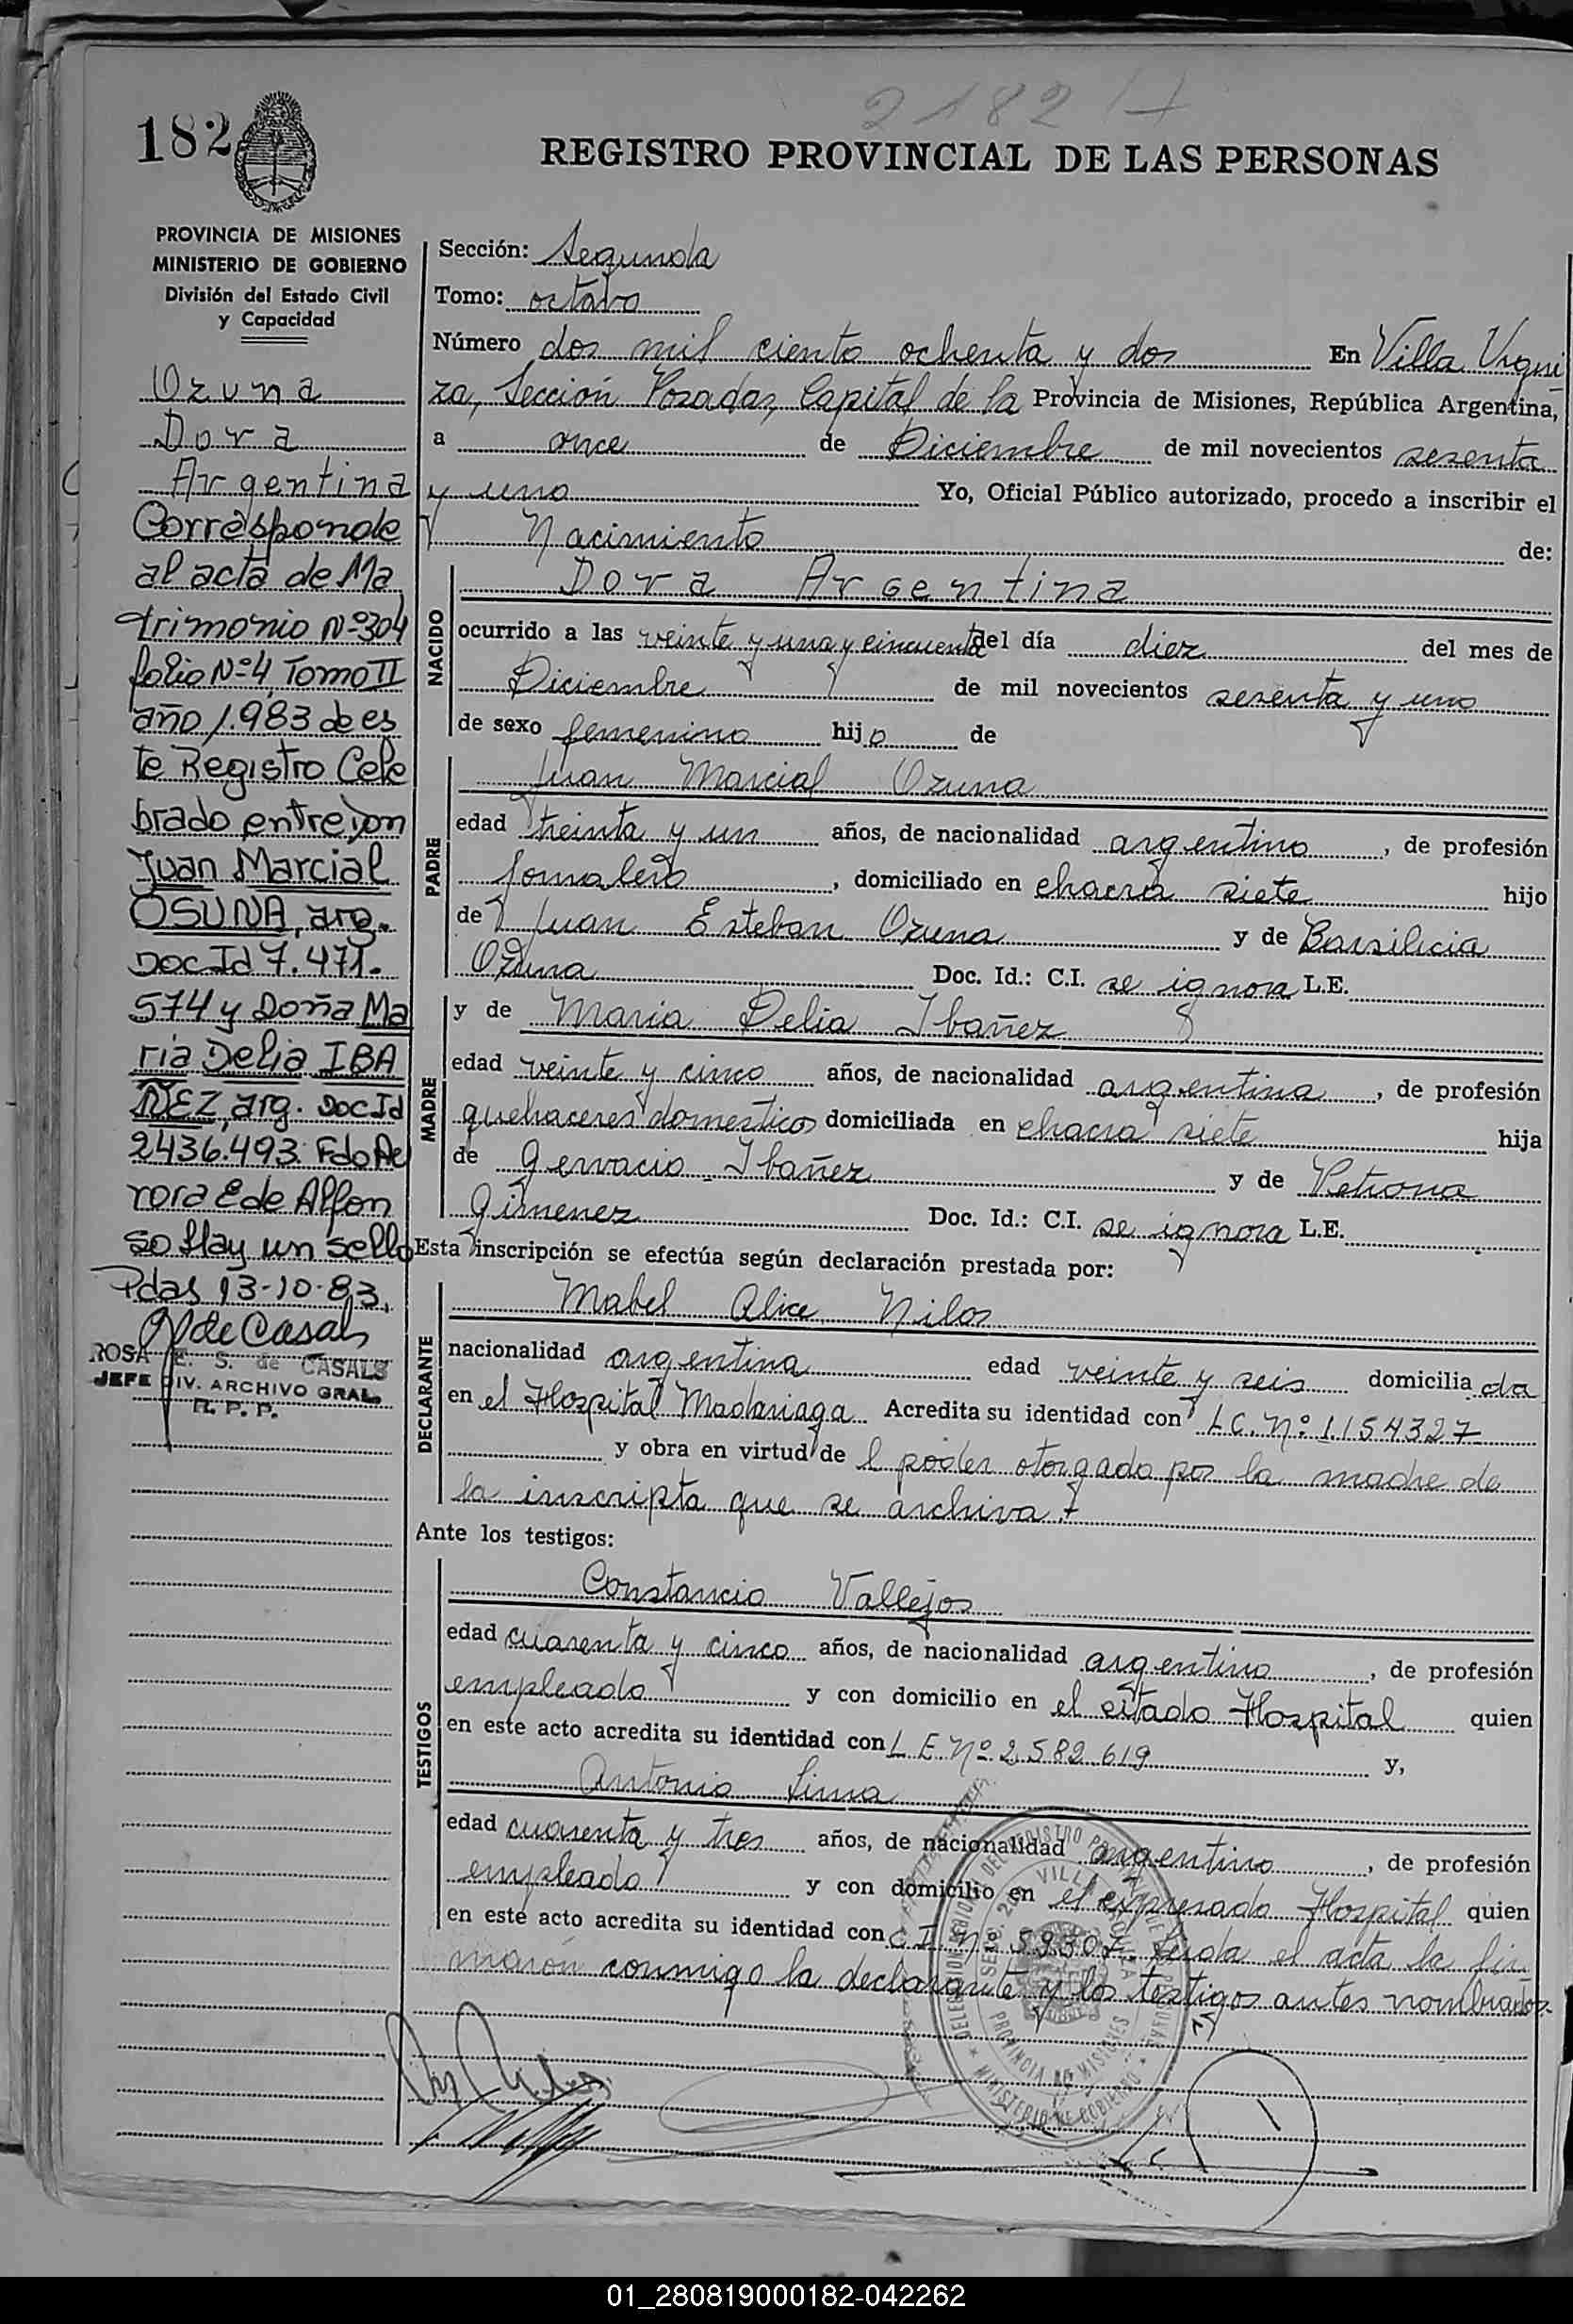 2182
182
REGISTRO PROVINCIAL DE LAS PERSONAS
PROVINCIA DE MISIONES
MINISTERIO DE GOBIERNO
División del Estado Civil
y Capacidad
Ozuna
Dora
Argentina
Corresponde
al acta de Ma
trimonio Nº304
folio Nº4, Tomo II
año 1.983 de es
te Registro Cele
brado entre Don
Juan Marcial
OSUNA, arg.
Doc Id 7.471.
574 y Doña Ma
ria Delia IBA
ÑEZ, arg. Doc Id
2436.493. Fdo
rora E de Alfon
so Hay un sello
Pdas 13-10-83.
de Casals
ROSA E. S. de CASALS
JEFE DIV. ARCHIVO GRAL.
R. P. P.
Sección: Segunda
Tomo: octavo
Número dos mil ciento ochenta y dos En Villa Urqui
za, Sección Posadas, Capital de la Provincia de Misiones, República Argentina,
a once de Diciembre de mil novecientos sesenta
y uno Yo, Oficial Público autorizado, procedo a inscribir el
Nacimiento de:
NACIDO
Dora Argentina
ocurrido a las veinte y una y cincuenta del día diez del mes de
Diciembre de mil novecientos sesenta y uno
de sexo femenino hijo de
PADRE
Juan Marcial Ozuna
edad treinta y un años, de nacionalidad argentino, de profesión
Jornalero, domiciliado en chacra siete hijo
de Juan Esteban Ozuna y de Barsilicia
Ozuna Doc. Id.: C.I. se ignora L.E.
MADRE
y de Maria Delia Ibañez
edad veinte y cinco años, de nacionalidad argentina, de profesión
quehaceres domesticos domiciliada en chacra siete hija
de Gervacio Ibañez y de Petrona
Gimenez Doc. Id.: C.I. se ignora L.E.
Esta inscripción se efectúa según declaración prestada por:
DECLARANTE
Mabel Alice Nilos
nacionalidad argentina edad veinte y seis domiciliada
en el Hospital Madariaga Acredita su identidad con L.C. Nº 1154327
y obra en virtud de l poder otorgado por la madre de
la inscripta que se archiva.
Ante los testigos:
TESTIGOS
Constancio Vallejos
edad cuarenta y cinco años, de nacionalidad argentino, de profesión
empleado y con domicilio en el citado Hospital quien
en este acto acredita su identidad con L E Nº 2.582.619 y,
Antonio Lima
edad cuarenta y tres años, de nacionalidad argentino, de profesión
empleado y con domicilio en el expresado Hospital quien
en este acto acredita su identidad con C I Nº 59307. Leida el acta la fir
maron conmigo la declarante y los testigos antes nombrados.
PROVINCIA DE MISIONES
MINISTERIO DE GOBIERNO
01_280819000182-042262